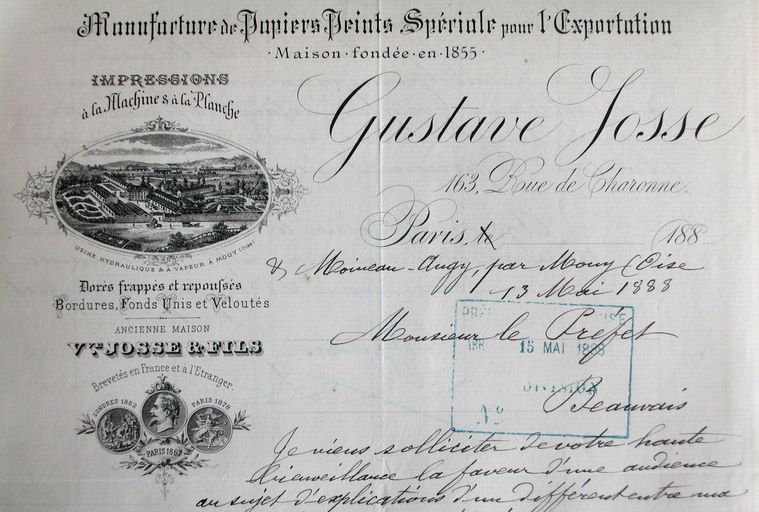 Manufacture de Papiers Peints Spéciale pour l'Exportation
Maison fondée en 1855
IMPRESSIONS
à la Machine & à la Planche
USINE HYDRAULIQUE & A VAPEUR À MOUY (Oise)
Dorés frappés et repoussés
Bordures, Fonds Unis et Veloutés
ANCIENNE MAISON
Vve JOSSE & FILS
Brevetés en France et à l'Etranger.
LONDRES 1862
PARIS 1878
PARIS 1867
Gustave Josse
163, Rue de Charonne.
Paris, le 188
& Moineau-Angy, par Mouy (Oise
13 Mai 1888
Monsieur le Préfet
Beauvais
15 MAI 1888
DIVISION
N°
Je viens solliciter de votre haute
bienveillance la faveur d'une audience
au sujet d'explications d'un différent entre ma